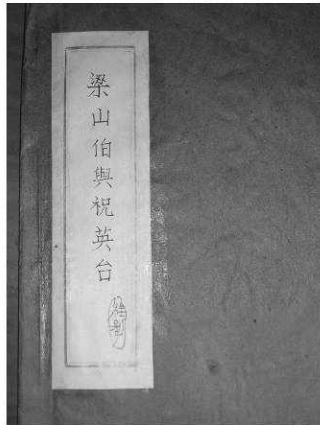 梁山伯與祝英台